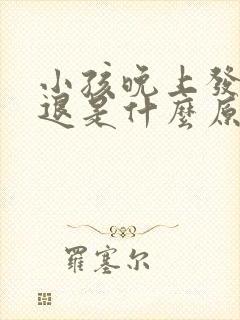 小孩晚上發
退是什麼原
羅塞尔